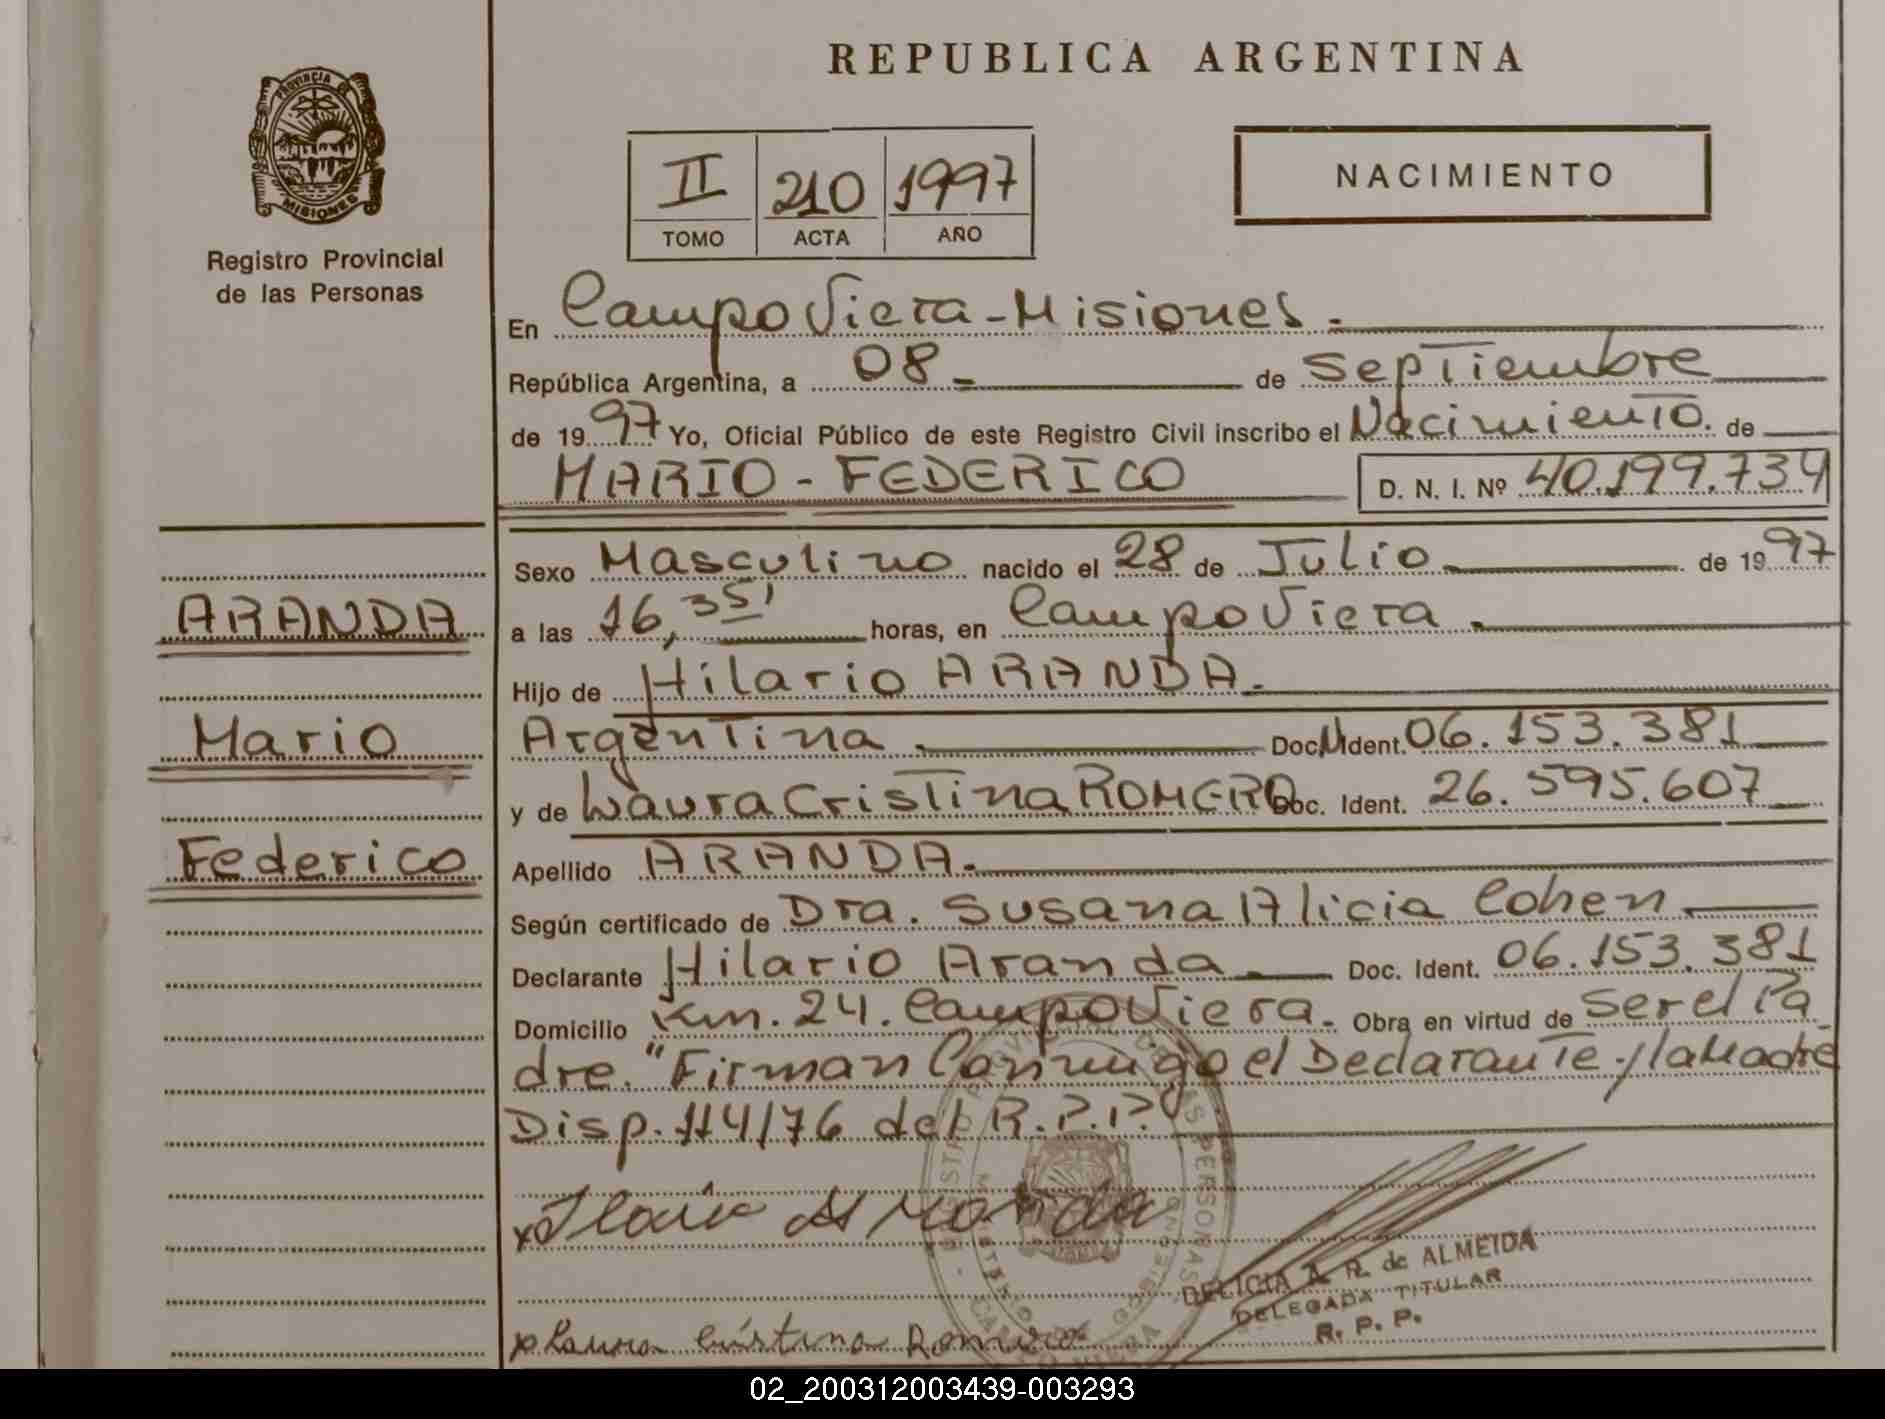 PROVINCIA DE
MISIONES
Registro Provincial
de las Personas
REPUBLICA ARGENTINA
II 210 1997
TOMO ACTA AÑO
NACIMIENTO
En Campo Viera - Misiones.
República Argentina, a 08 de Septiembre
de 1997 Yo, Oficial Público de este Registro Civil inscribo el Nacimiento. de
MARIO - FEDERICO D. N. I. Nº 40.199.734
ARANDA
Mario
Federico
Sexo Masculino nacido el 28 de Julio de 1997
a las 16,35' horas, en Campo Viera.
Hijo de Hilario ARANDA.
Argentina. Doc. Ident. 06.153.381
y de Laura Cristina ROMERO Doc. Ident. 26.595.607
Apellido ARANDA.
Según certificado de Dra. Susana Alicia Cohen
Declarante Hilario Aranda Doc. Ident. 06.153.381
Domicilio Km. 24. Campo Viera. Obra en virtud de Ser el Pa
dre. "Firman Conmigo el Declarante y la Madre
Disp. 114/76 del R.P.P."
DELICIA A. R. de ALMEIDA
DELEGADA TITULAR
R. P. P.
x Laura Cristina Romero
02_200312003439-003293